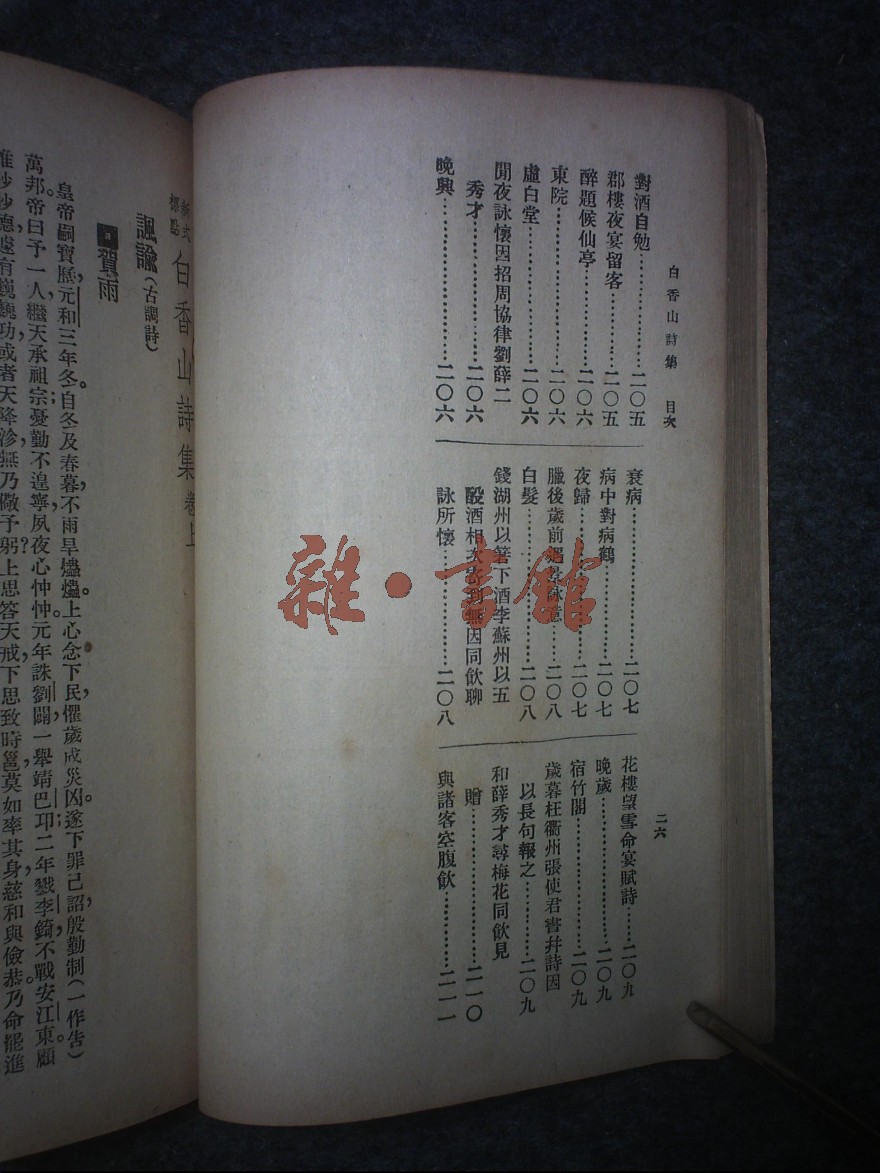 白香山詩集 目次
二六
對酒自勉⋯⋯⋯⋯二〇五
郡樓夜宴留客⋯⋯⋯⋯二〇五
醉題候仙亭⋯⋯⋯⋯二〇六
東院⋯⋯⋯⋯二〇六
虛白堂⋯⋯⋯⋯二〇六
閒夜詠懷因招周協律劉薛二
秀才⋯⋯⋯⋯二〇六
晚興⋯⋯⋯⋯二〇六
衰病⋯⋯⋯⋯二〇七
病中對病鶴⋯⋯⋯⋯二〇七
夜歸⋯⋯⋯⋯二〇七
臘後歲前遇景詠意⋯⋯⋯⋯二〇八
白髮⋯⋯⋯⋯二〇八
錢湖州以箬下酒李蘇州以五
酘酒相次寄到無因同飲聊
詠所懷⋯⋯⋯⋯二〇八
花樓望雪命宴賦詩⋯⋯⋯⋯二〇九
晚歲⋯⋯⋯⋯二〇九
宿竹閣⋯⋯⋯⋯二〇九
歲暮枉衢州張使君書幷詩因
以長句報之⋯⋯⋯⋯二〇九
和薛秀才尋梅花同飲見
贈⋯⋯⋯⋯二一〇
與諸客空腹飲⋯⋯⋯⋯二一一
新式
標點
白香山詩集 卷上
諷諭(古調詩)
賀雨
皇帝嗣寶曆,元和三年冬。自冬及春暮,不雨旱爞爞。上心念下民,懼歲成災凶。遂下罪己詔,殷勤制(一作告)
萬邦。帝曰予一人,繼天承祖宗;憂勤不遑寧,夙夜心忡忡。元年誅劉闢,一舉靖巴邛;二年戮李錡,不戰安江東。顧
惟眇眇德,遽有巍巍功?或者天降沴,無乃儆予躬?上思答天戒,下思致時邕;莫如率其身,慈和與儉恭。乃命罷進
雜·書館